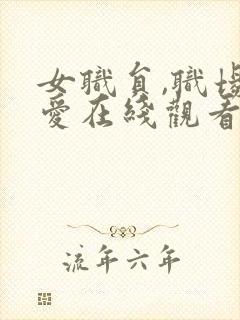 女職員,職場
愛在綫觀看
流年六年